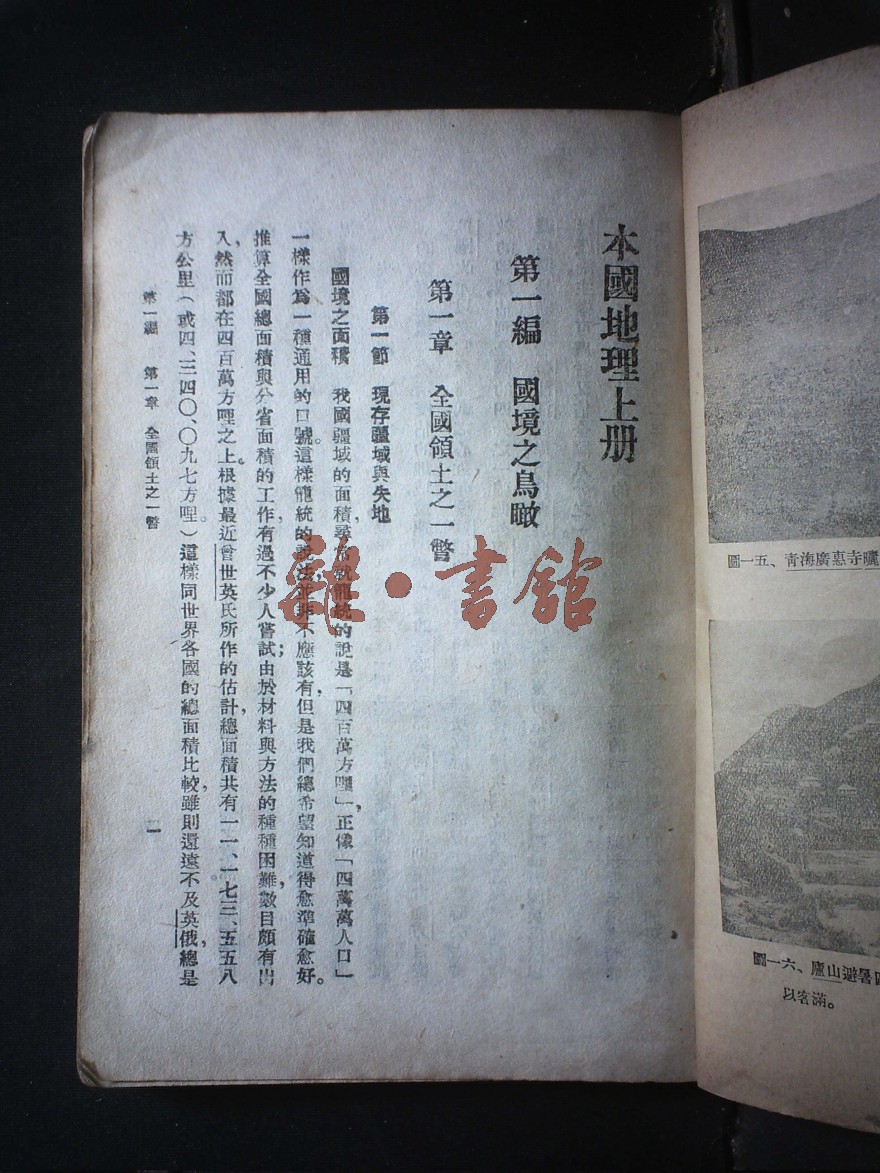 本國地理上册
第一編　國境之鳥瞰
第一章　全國領土之一瞥
第一節　現存疆域與失地
國境之面積　我國疆域的面積，尋常就籠統的說是「四百萬方哩」，正像「四萬萬人口」
一樣作爲一種通用的口號。這樣籠統的說法，並非不應該有；但是我們總希望知道得愈準確愈好。
推算全國總面積與分省面積的工作，有過不少人嘗試，由於材料與方法的種種困難，數目頗有出
入，然而都在四百萬方哩之上。根據最近曾世英氏所作的估計，總面積共有一一、一七三、五五八
方公里（或四、三四〇、〇九七方哩。）這樣同世界各國的總面積比較，雖則還遠不及英俄，總是
第一編　第一章　全國領土之一瞥
一
圖一五、青海廣惠寺曬
圖一六、廬山避暑
以客滿。
書館